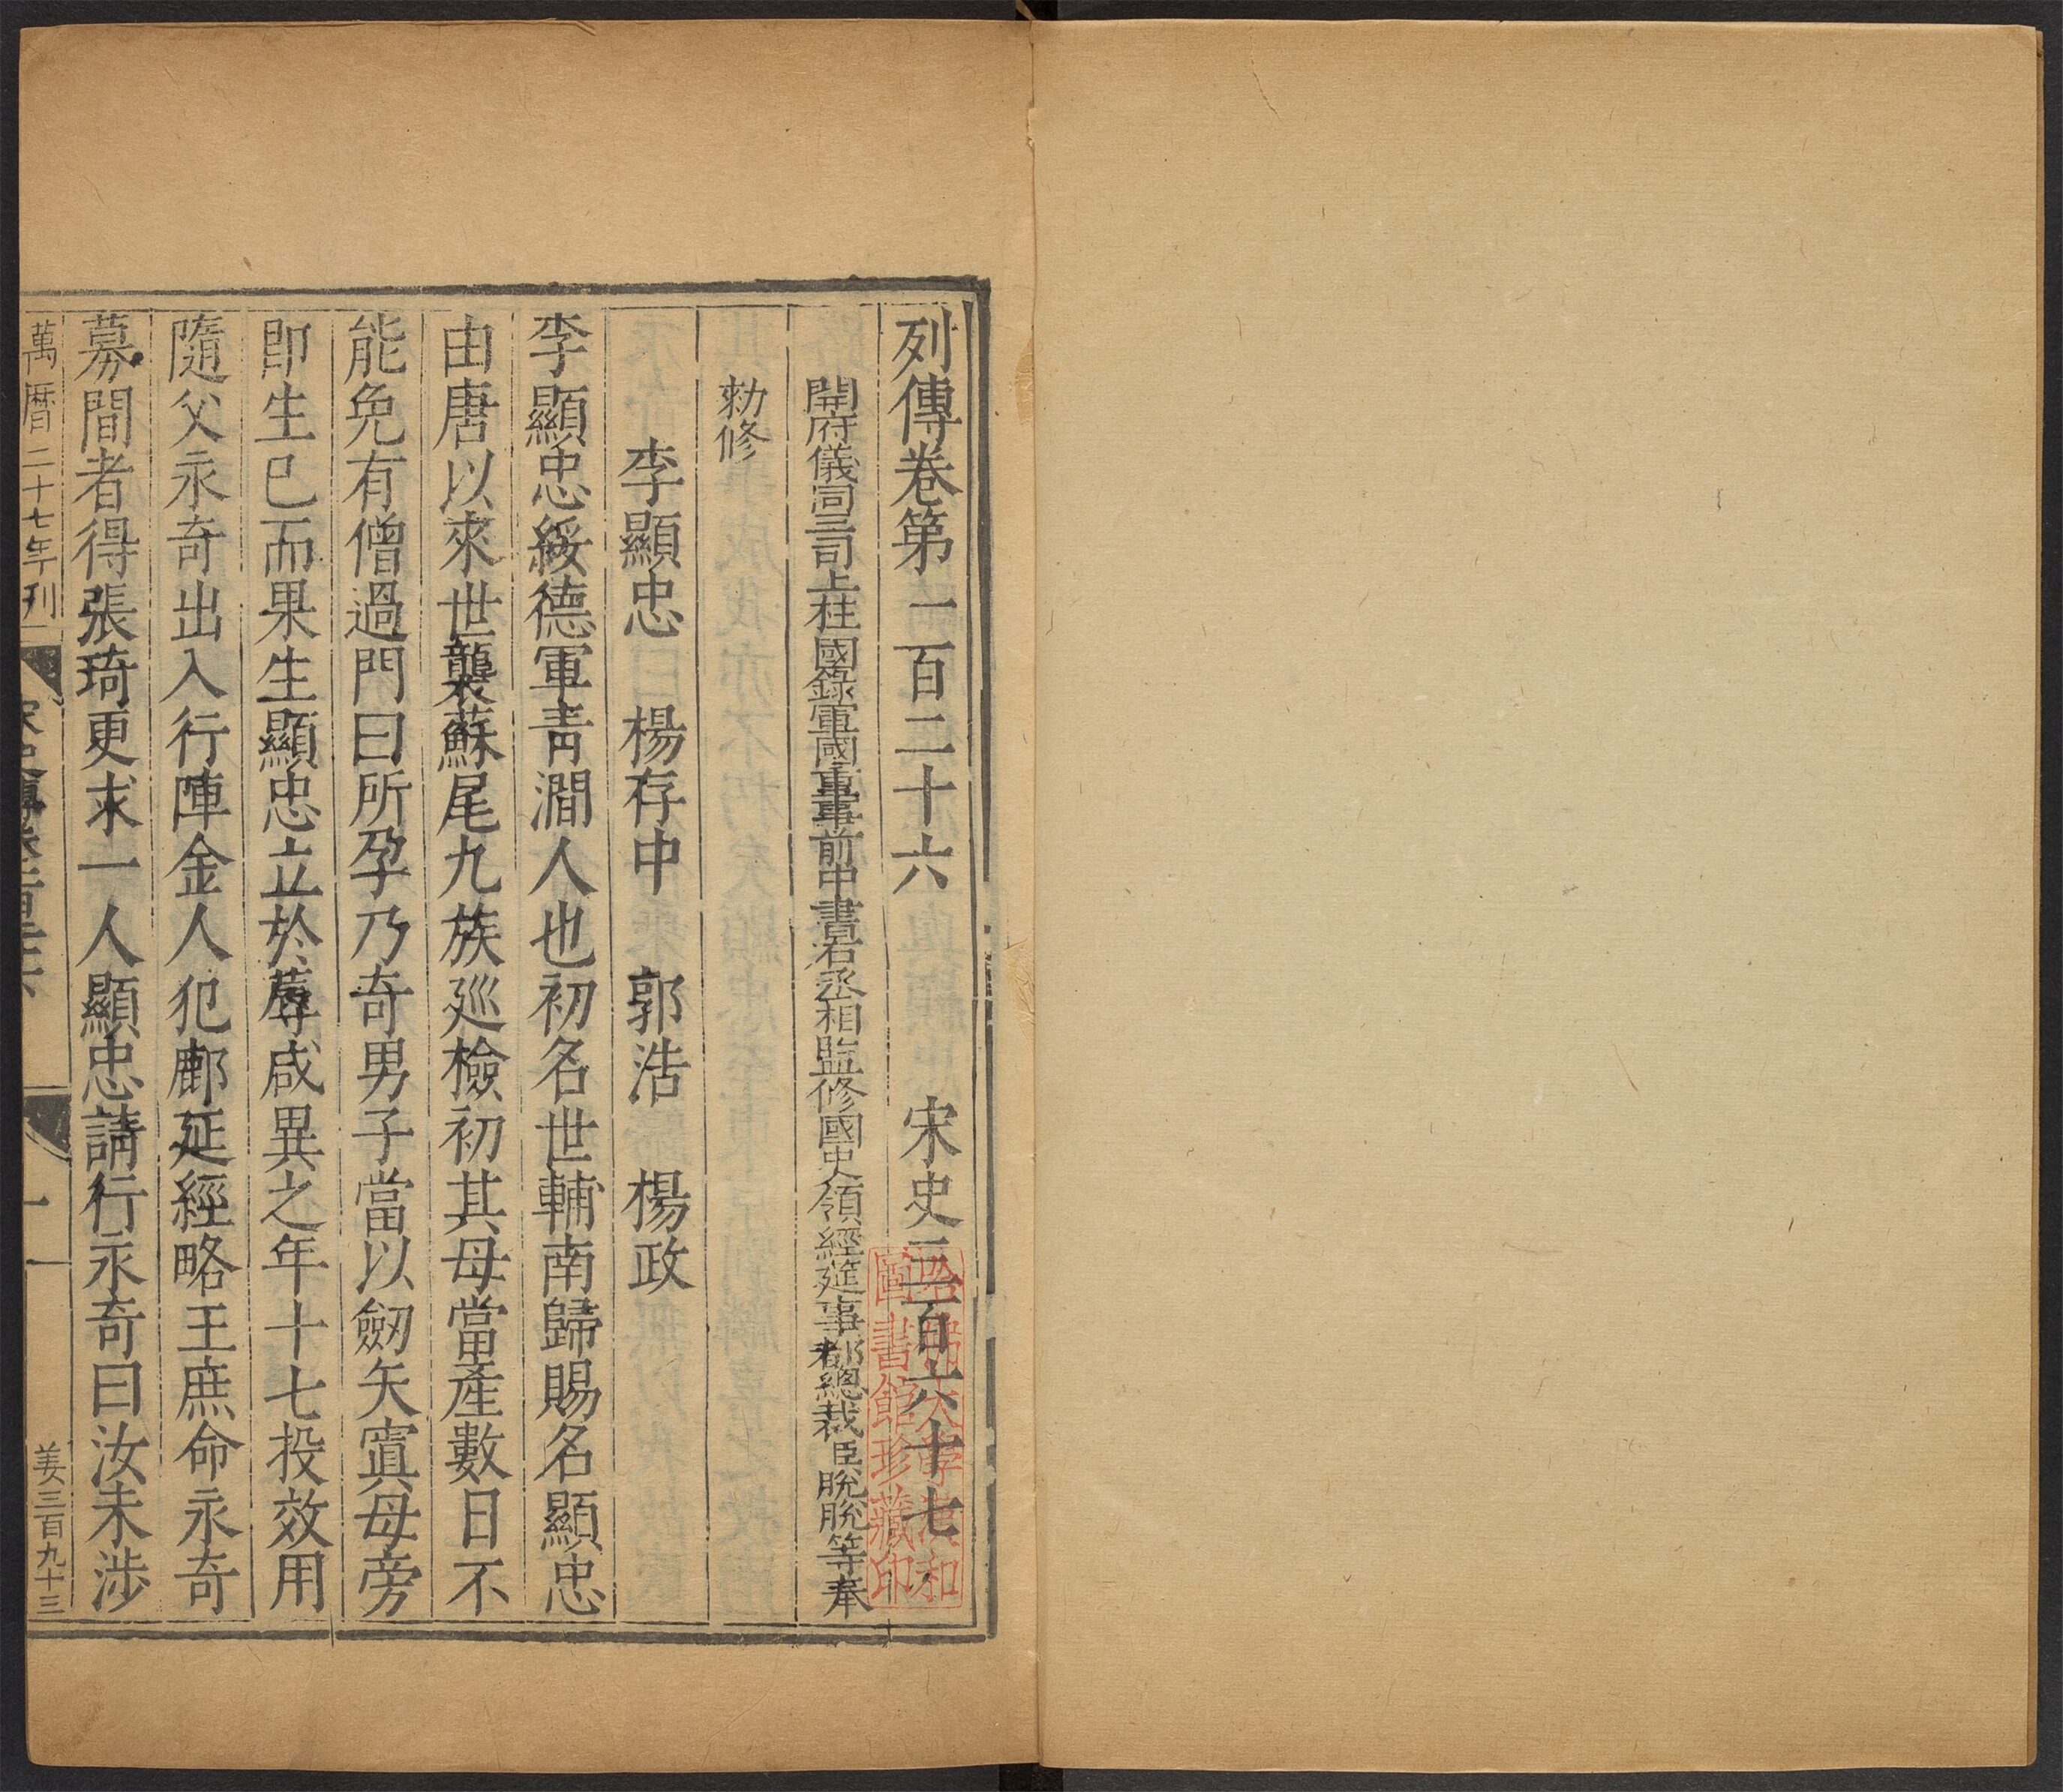 列傳卷第一百二十六 宋史三百六十七
開府儀同三司上柱國錄軍國重事前中書右丞相監修國史領經筵事都總裁臣脫脫等奉
勑修
李顯忠 楊存中 郭浩 楊政
李顯忠綏德軍青澗人也初名世輔南歸賜名顯忠
由唐以來世襲蘇尾九族廵檢初其母當產數日不
能免有僧過門曰所孕乃奇男子當以劒矢寘母旁
即生已而果生顯忠立於蓐咸異之年十七投效用
隨父永奇出入行陣金人犯鄜延經略王庶命永奇
募間者得張琦更求一人顯忠請行永奇曰汝未涉
萬曆二十七年刊
宋史傳卷一百二十六
一
姜三百九十三
哈佛大學漢和
圖書館珍藏印